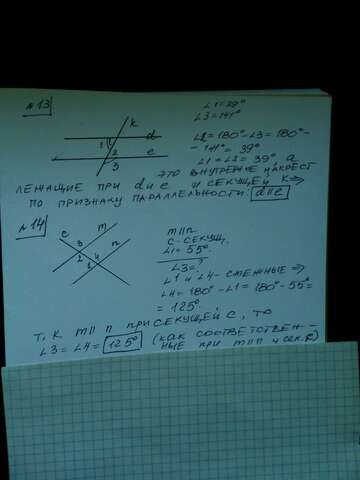 №13
∠1=39°
∠3=141°
k
d
1
2
e
3
∠2=180°-∠3=180°-
-141°=39°
∠1=∠2=39°, а
это внутренне накрест
лежащие при d и e и секущей k ⇒
по признаку параллельности: d||e
№14
c
m
n
3
2 4
1
m||n
c-секущ.
∠1=55°
∠3=?
∠1 и ∠4-смежные ⇒
∠4=180°-∠1=180°-55°=
=125°.
Т.к m||n при секущей c, то
∠3=∠4=125° (как соответствен-
ные при m||n и сек. c)